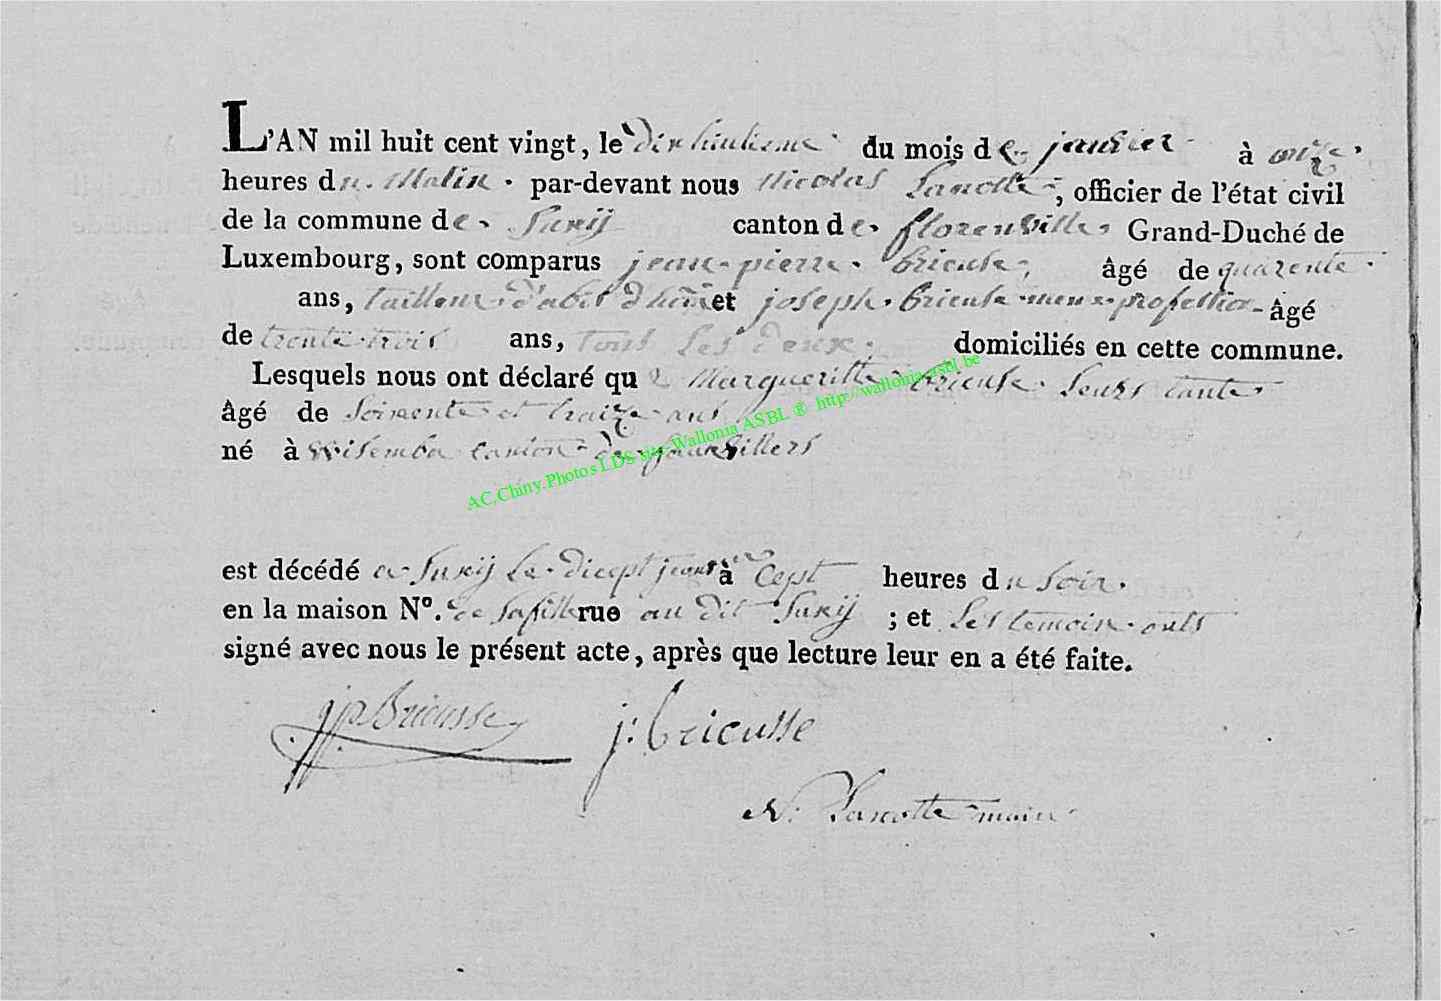 L'AN mil huit cent vingt, le dixhuitieme du mois de janvier à onze
heures du Matin. par-devant nous Nicolas Lanotte, officier de l'état civil
de la commune de Suxÿ canton de florenville, Grand-Duché de
Luxembourg, sont comparus jean-pierre bricuse, âgé de quarente
ans, tailleur d'abit d'home et joseph bricuse meme profession âgé
de trente trois ans, tous les deux domiciliés en cette commune.
Lesquels nous ont déclaré que Margueritte bricuse leurs tante
âgé de soixente et traize ans
né à Wisemba canton de fauvillers
AC.Chiny.Photos LDS site Wallonia ASBL ® http://wallonia-asbl.be
est décédé a Suxÿ le dicept à cept heures du soir.
en la maison N°. de sa fille rue au dit Suxÿ ; et les temoin onts
signé avec nous le présent acte, après que lecture leur en a été faite.
jp Bricusse j: bricusse
N: Lanotte